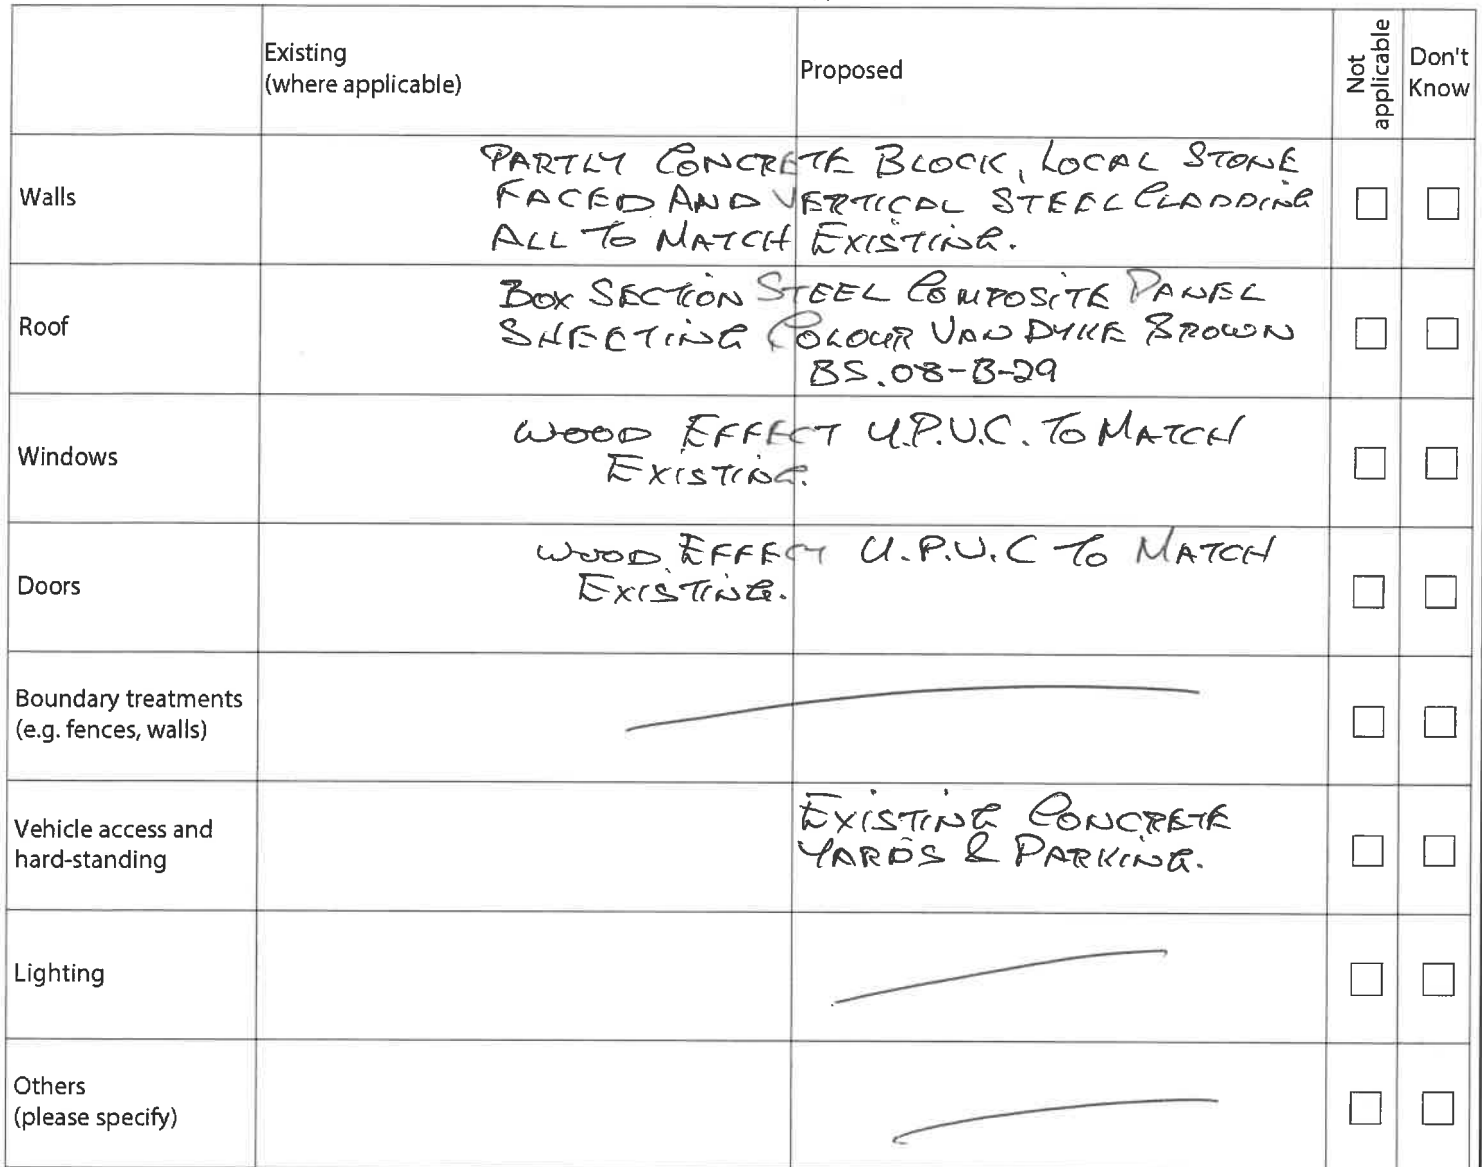 Existing
(where applicable)
Proposed
Not
applicable
Don't
Know
Walls
PARTLY CONCRETE BLOCK, LOCAL STONE
FACED AND VERTICAL STEEL CLADDING
ALL TO MATCH EXISTING.
Roof
BOX SECTION STEEL COMPOSITE PANEL
SHEETING COLOUR VAN DYKE BROWN
BS.08-B-29
Windows
WOOD EFFECT U.P.V.C. TO MATCH
EXISTING.
Doors
WOOD EFFECT U.P.V.C TO MATCH
EXISTING.
Boundary treatments
(e.g. fences, walls)
Vehicle access and
hard-standing
EXISTING CONCRETE
YARDS & PARKING.
Lighting
Others
(please specify)